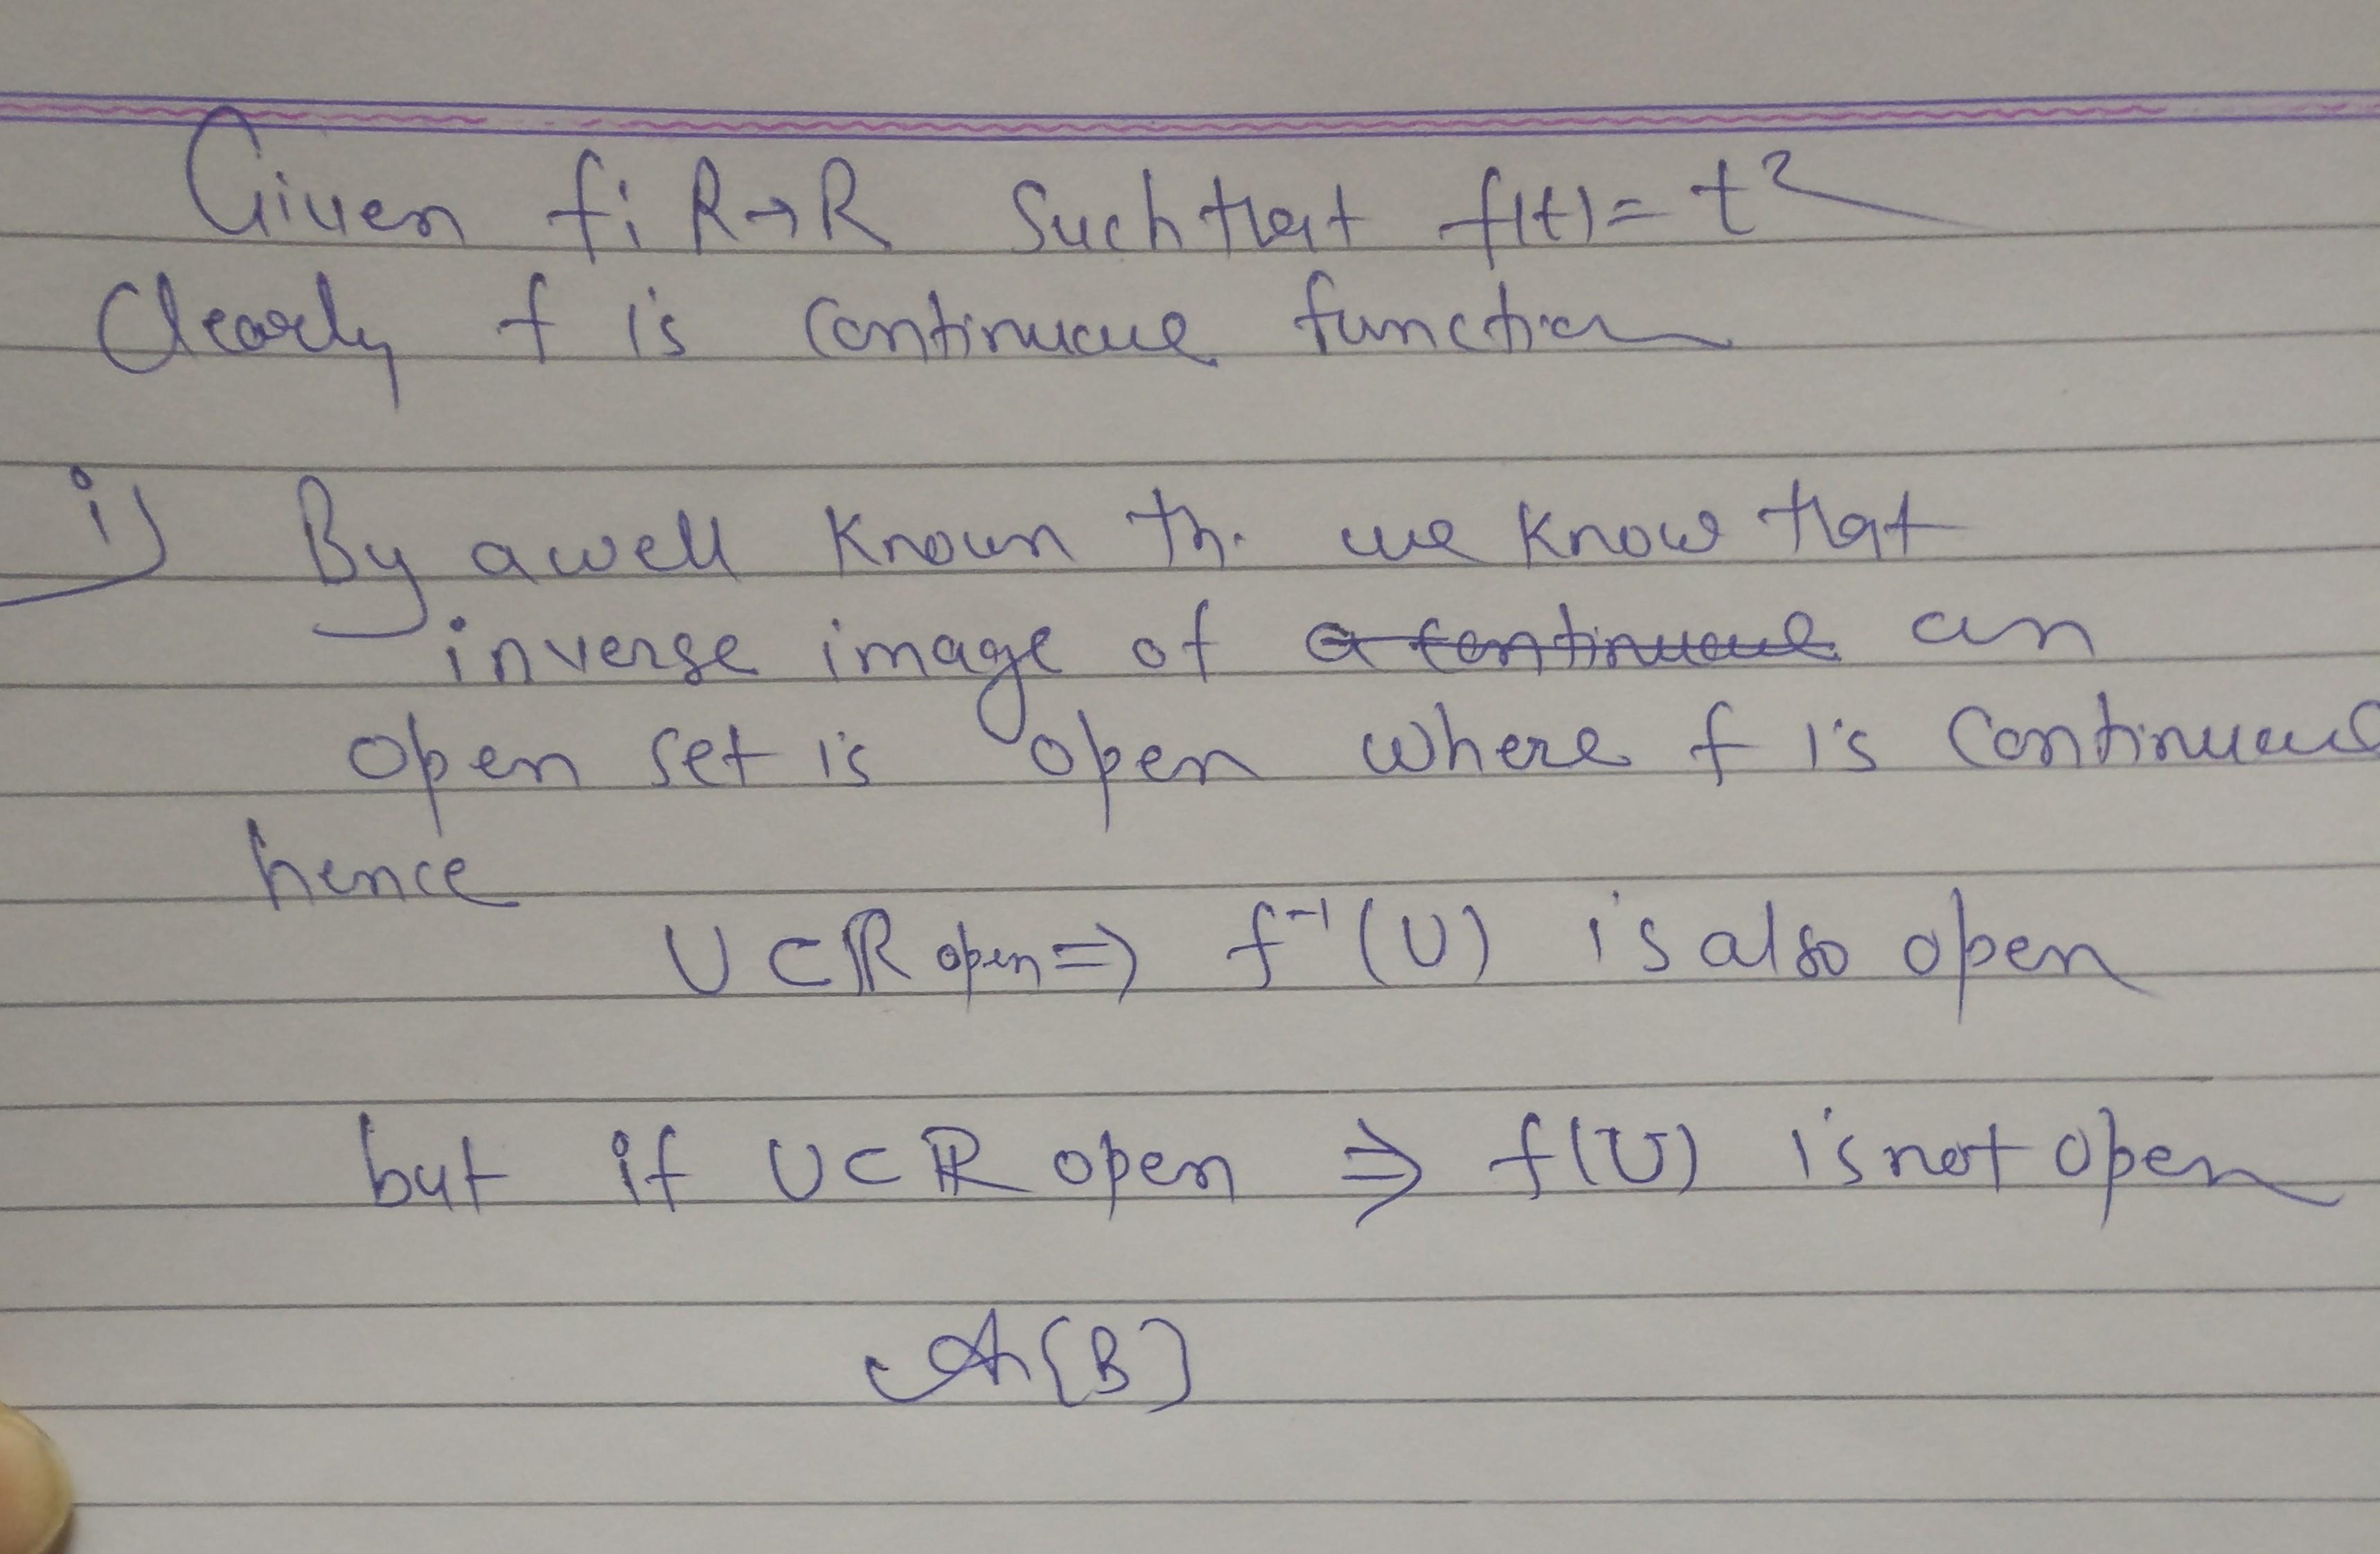 Given f: R→R Such that f(t) = t²
Clearly f is continuous function
i) By a well known th. we know that
inverse image of a continuous an
open set is open where f is continuous
hence
U⊂ℝ open ⇒ f⁻¹(U) is also open
but if U⊂ℝ open ⇒ f(U) is not open
An[B]